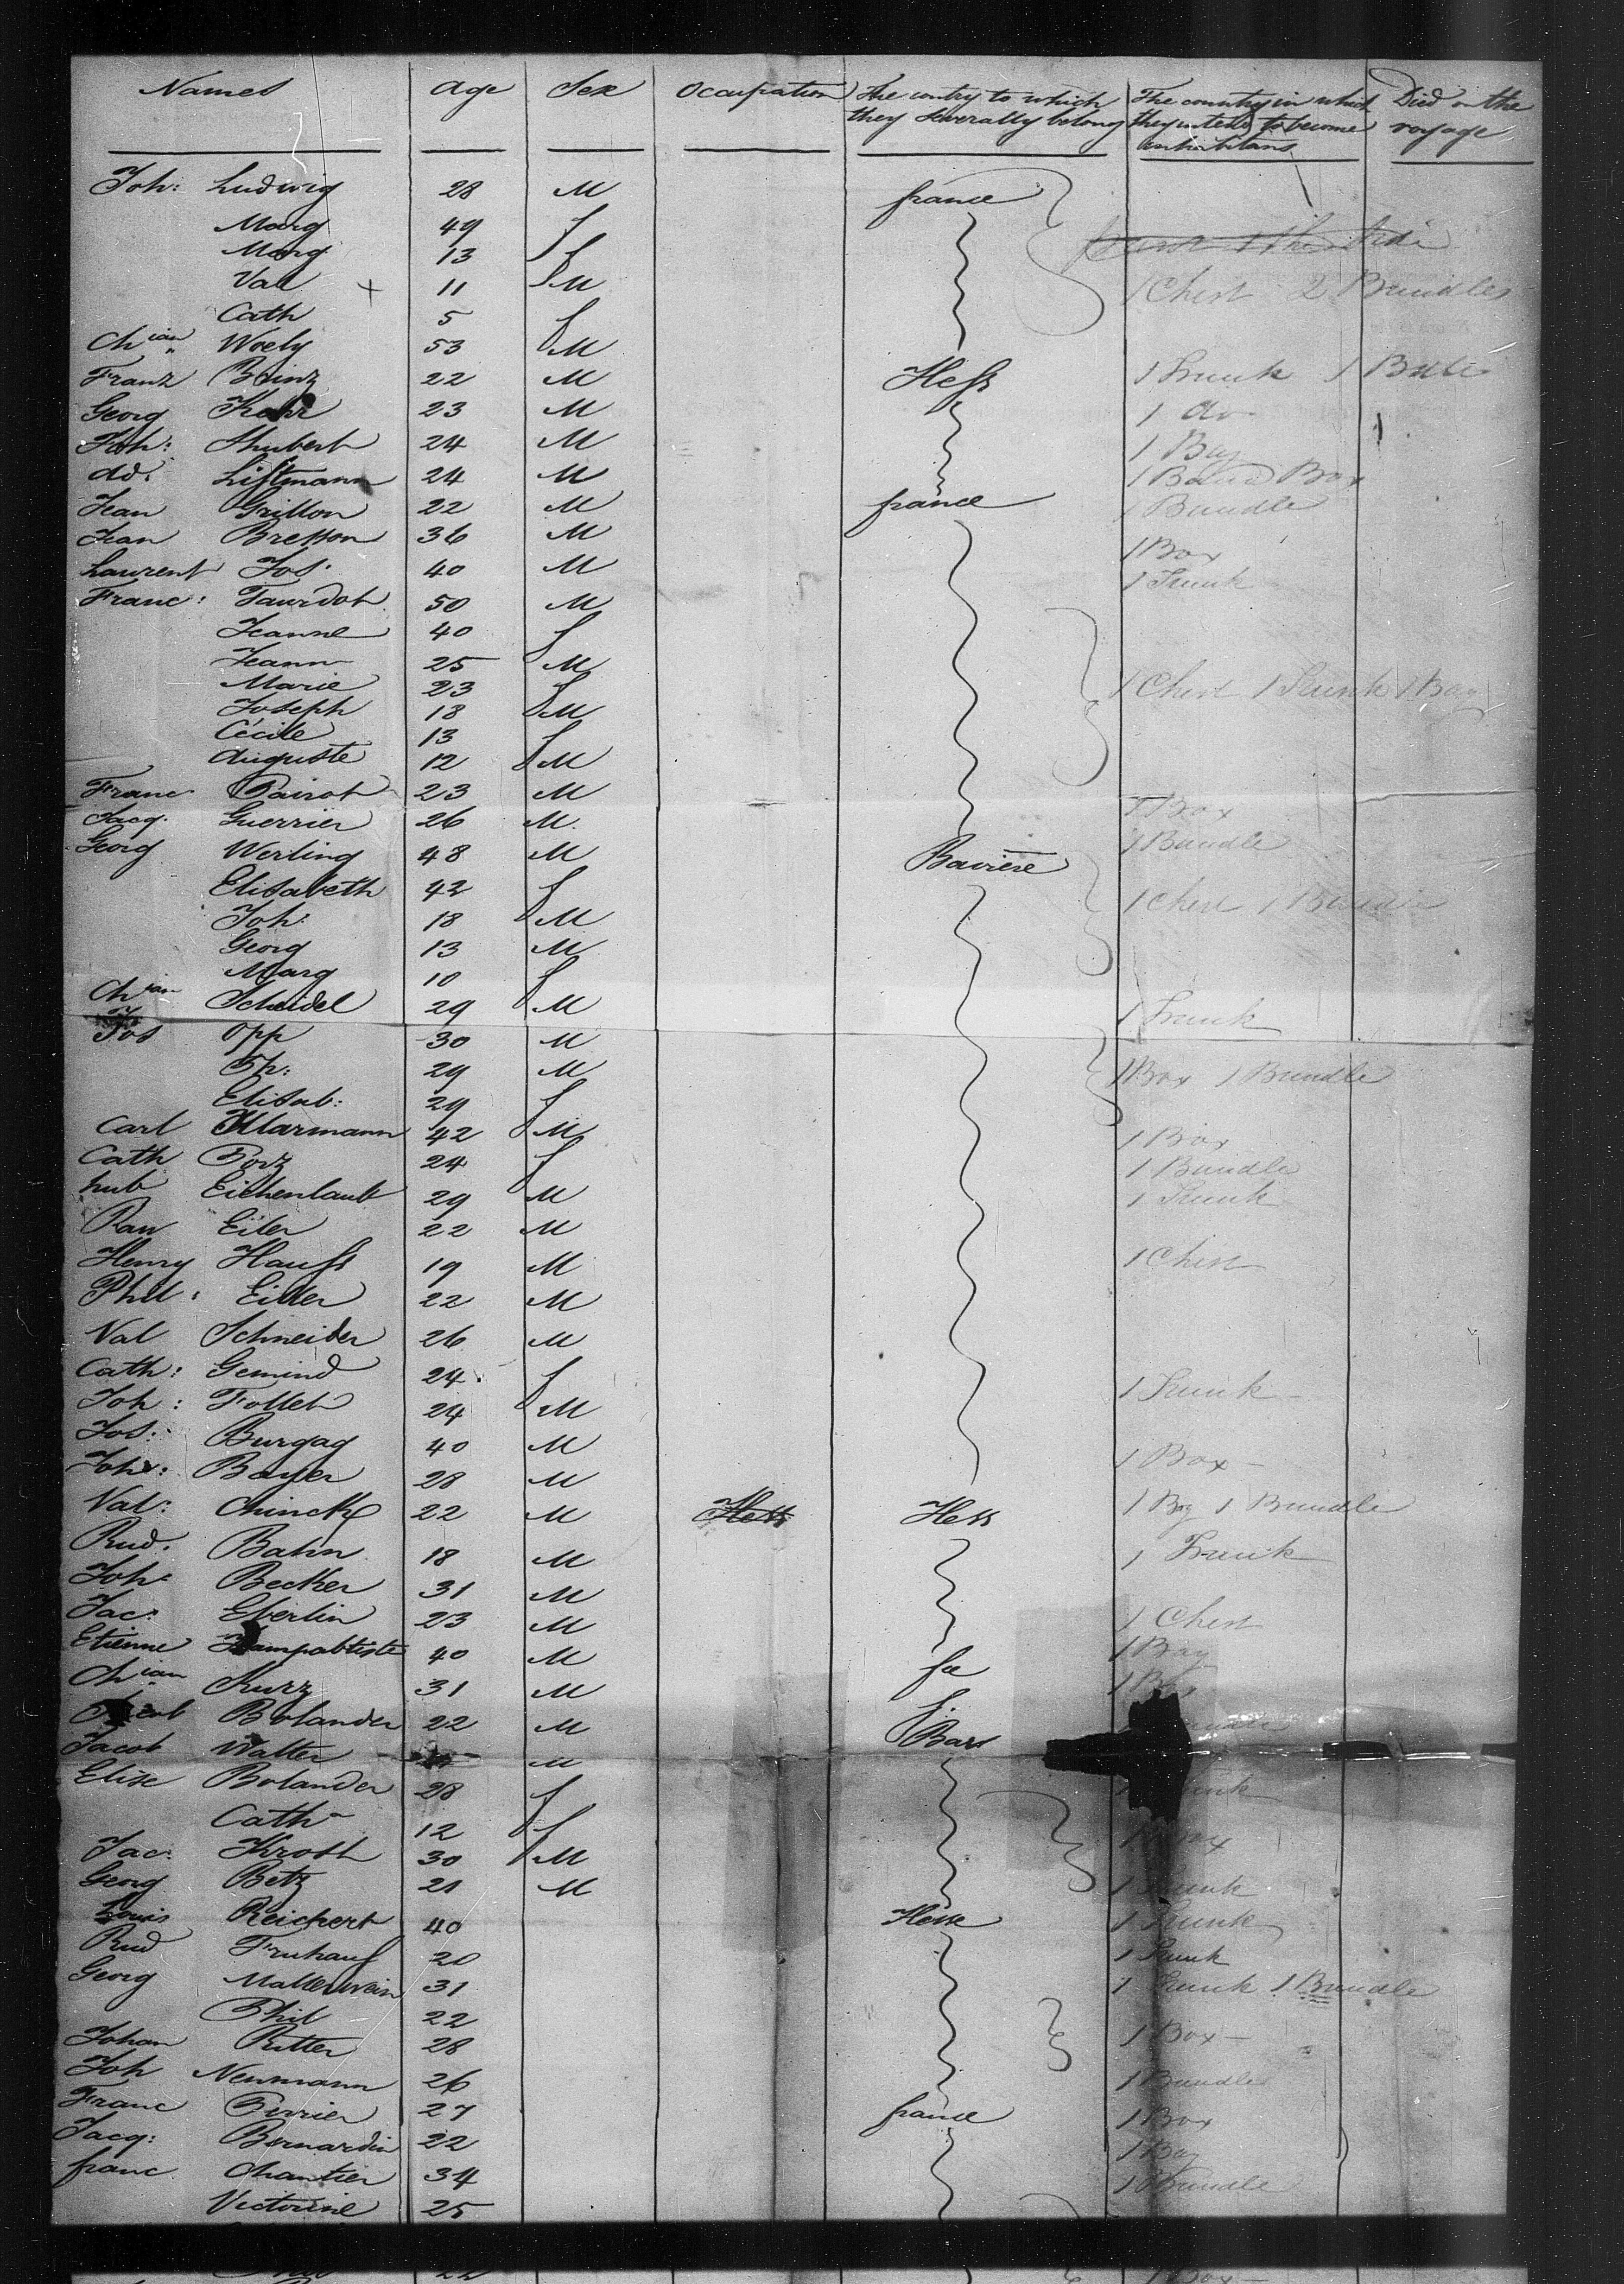 Names Age Sex Occupation The contry to which they severally belong The country in which they intend to become inhabitans Died on the voyage
Joh: Ludwig 28 M france
Marg 49 f
Marg 13 f
Val + 11 M 1 Chest 2 Bundles
Cath 5 f
Chian Woely 53 M
Franz Brinz 22 M Hess 1 Trunk 1
Georg 23 M 1 do
Joh: Shubert 24 M 1 Bag
Ad. Listmann 24 M 1 Band Box
Jean Grillon 22 M france 1 Bundle
Jean Bresson 36 M 1 Box
Laurent Jos. 40 M 1 Trunk
Franc: Taurdot 50 M
Jeanne 40 f
Jeann 25 M
Marie 23 f 1 Chest 1 Trunk 1 Bag
Joseph 18 M
Cécile 13 f
Auguste 12 M
Franc Pairot 23 M 1 Box
Jacq. Guerrier 26 M 1 Bundle
Georg Werling 48 M Baviere
Elisabeth 42 f 1 Chest 1 Bundle
Joh: 18 M
Georg 13 M
Marg 10 f
Chian Scheidel 29 M 1 Trunk
Jos Opp 30 M
Th: 29 M 1 Box 1 Bundle
Elisab: 29 f
Carl Klarmann 42 M 1 Box
Cath Forz 24 f 1 Bundle
hub Eichenlaub 29 M 1 Trunk
Eiler 22 M
Henry Hauss 19 M 1 Chest
Phil: Eiller 22 M
Val Schneider 26 M
Cath: Gemind 24 f 1 Trunk
Joh: Follet 24 M
Jos: Burgag 40 M 1 Box
Joh: Bayer 28 M
Val: Chinck 22 M Hess Hess 1 Bag 1 Bundle
Rud. Bahn 18 M 1 Trunk
Joh Becker 31 M
Jac: Eberlin 23 M 1 Chest
Etienne 40 M fr 1 Bag
Chian Kurz 31 M
Bolander 22 M Bav
Jacob Walter M
Elise Bolander 28 f
Cath 12 f
Jac: Krost 30 M
Georg Betz 21 M 1 Trunk
Louis Reichert 40 Hesse 1 Trunk
Rud Fruhauf 20 1 Trunk
Georg 31 1 Trunk 1 Bundle
Phil 22
Johan Ritter 28 1 Box
Joh Neumann 26 1 Bundle
Franc Perrier 27 france 1 Box
Jacq: Bernardin 22 1 Bag
franc Chantier 34 1 Bundle
Victorine 25